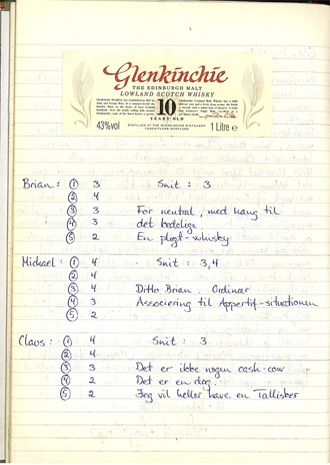 Glenkinchie
THE EDINBURGH MALT
LOWLAND SCOTCH WHISKY
10
YEARS OLD
43%vol
DISTILLED AT THE GLENKINCHIE DISTILLERY
1 Litre e
Brian: ① 3 Snit: 3
② 4
③ 3 For neutral, med hang til
④ 3 det kedelige
⑤ 2 En plagt-whisky
Michael: ① 4 Snit: 3,4
② 4
③ 4 Ditto Brian. Ordinær
④ 3 Associering til Appertif-situationen
⑤ 2
Claus: ① 4 Snit: 3
② 4
③ 3 Det er ikke nogen cash-cow
④ 2 Det er en dog
⑤ 2 Jeg vil heller have en Tallisker